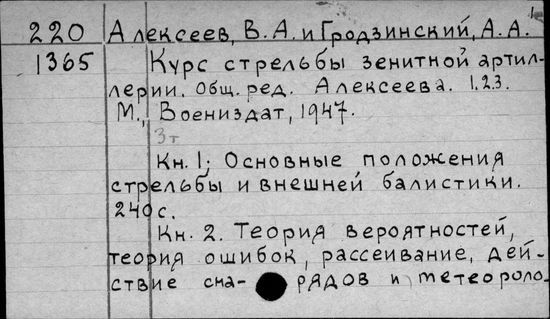 220 Алексеев, В. А. и Гродзинский, А. А. 1
1365 Курс стрельбы зенитной артил-
лерии. Общ. ред. Алексеева. 1.2.3.
М., Воениздат, 1947.
3т
Кн. 1: Основные положения
стрельбы и внешней балистики.
240 с.
Кн. 2. Теория вероятностей,
теория ошибок, рассеивание, дей-
ствие сна- рядов и метеороло-